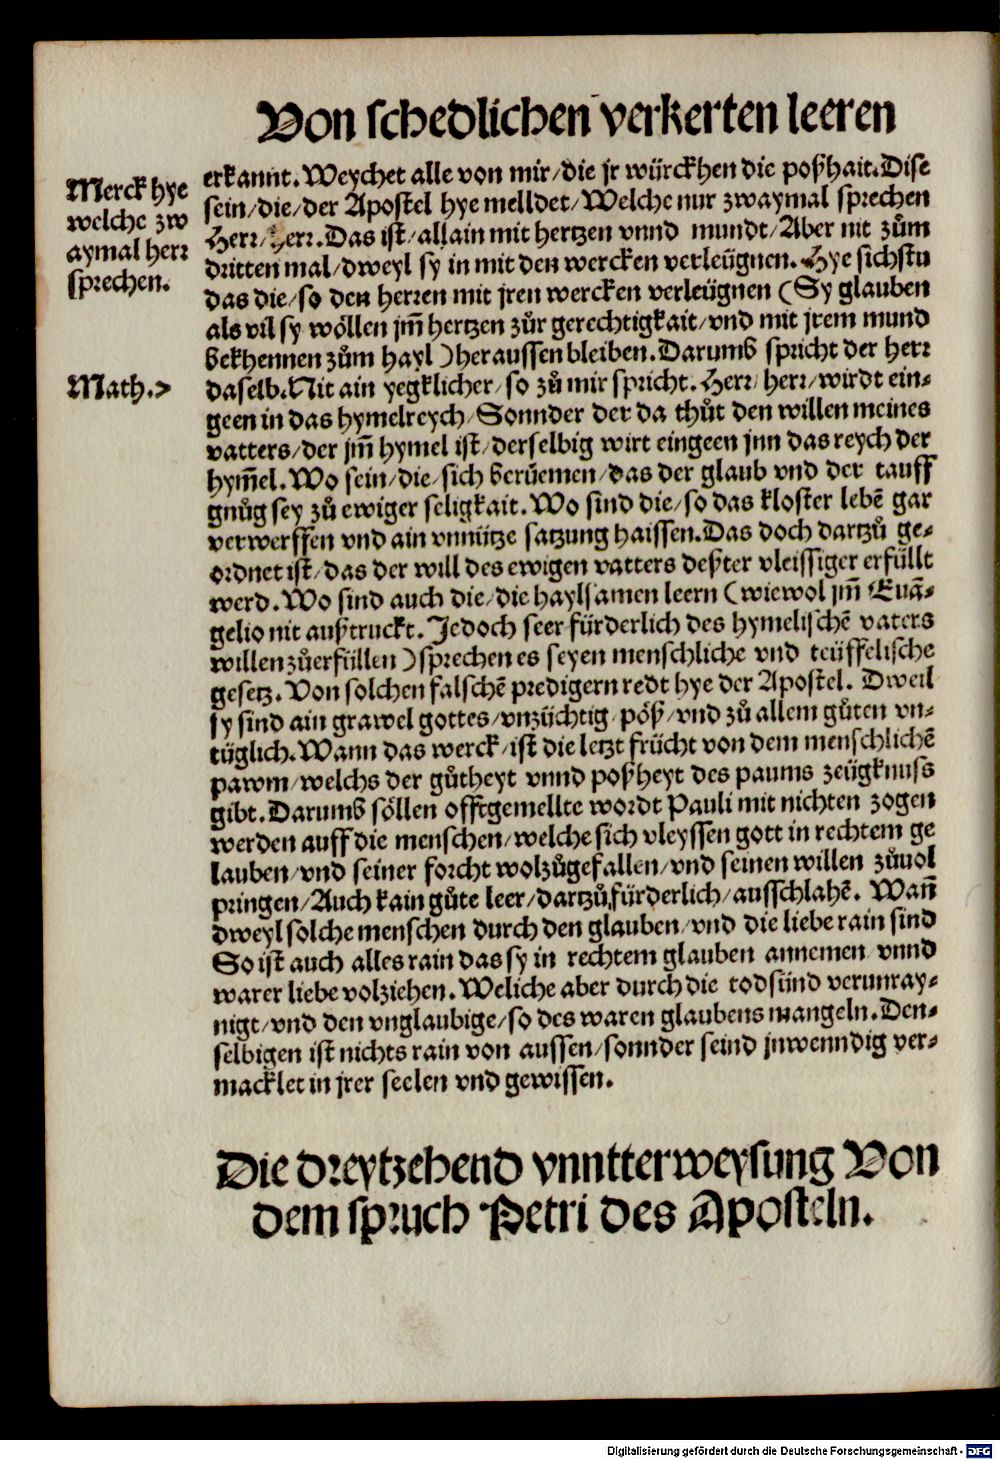 Von schedlichen verkerten leeren
Merck hye
welche zw
aymal herr
sprechen.
erkannt. Weychet alle von mir/die jr würckhen die poßhait. Dise
sein/die/der Apostel hye melldet/Welche nur zwaymal sprechen
Herr/herr. Das ist/allain mit hertzen vnnd mundt/Aber nit zům
dritten mal/dweyl sy in mit den wercken verleügnen. Hye sichstu
das die/so den herren mit jren wercken verleügnen (Sy glauben
als vil sy wöllen jm̄ hertzen zůr gerechtigkait/vnd mit jrem mund
bekhennen zům hayl) heraussen bleiben. Darumb spricht der herr
Math.7
daselb. Nit ain yegklicher/so zů mir spricht. Herr/herr/wirdt ein⸗
geen in das hymelreych/Sonnder der da thůt den willen meines
vatters/der jm̄ hymel ist/derselbig wirt eingeen jnn das reych der
hym̄el. Wo sein/die/sich berüemen/das der glaub vnd der tauff
gnůg sey zů ewiger seligkait. Wo sind die/so das kloster lebē gar
verwerffen vnd ain vnnütze satzung haissen. Das doch dartzů ge⸗
ordnet ist/das der will des ewigen vatters deßter vleissiger erfüllt
werd. Wo sind auch die/die haylsamen leern (wiewol jm̄ Euā⸗
gelio nit außtruckt. Jedoch seer fürderlich des hymelischē vaters
willen zůerfüllen) sprechen es seyen menschliche vnd teüffelische
gesetz. Von solchen falschē predigern redt hye der Apostel. Dweil
sy sind ain grawel gottes/vnzüchtig/pöß/vnd zů allem gůten vn⸗
tüglich. Wann das werck/ist die letzt frücht von dem menschlichē
pawm/welchs der gůtheyt vnnd poßheyt des paums zeügknuss
gibt. Darumb söllen offtgemellte wordt Pauli mit nichten zogen
werden auff die menschen/welche sich vleyssen gott in rechtem ge
lauben/vnd seiner forcht wolzůgefallen/vnd seinen willen zůuol
pringen/Auch kain gůte leer/dartzů fürderlich/ausschlahē. Wan̄
dweyl solche menschen durch den glauben/vnd die liebe rain sind
So ist auch alles rain das sy in rechtem glauben annemen/vnnd
warer liebe volziehen. Weliche aber durch die todsünd verunray⸗
nigt/vnd den vnglaubige/so des waren glaubens mangeln. Den⸗
selbigen ist nichts rain von aussen/sonnder seind jnwenndig ver⸗
macklet in jrer seelen vnd gewissen.
Die dreytzehend vnntterweysung Von
dem spruch Petri des Aposteln.
Digitalisierung gefördert durch die Deutsche Forschungsgemeinschaft - DFG